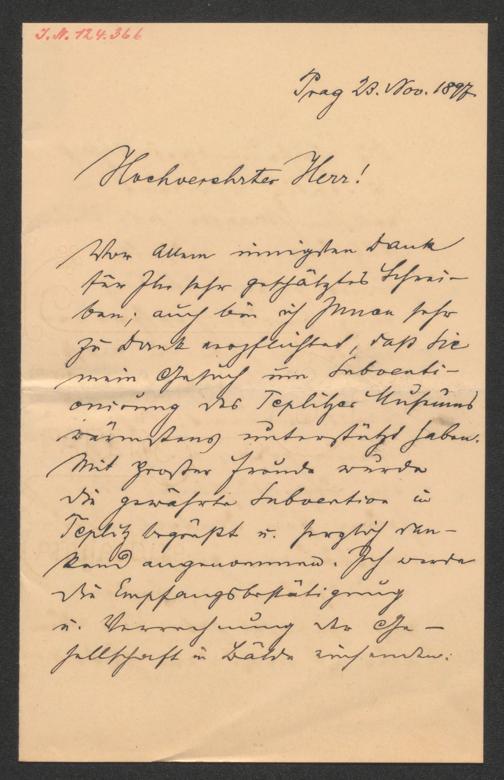 J.N. 124.366
Prag 23. Nov. 1897
Hochverehrter Herr!
Vor Allem innigsten Dank
für Ihr sehr geschätztes Schrei-
ben; auch bin ich Ihnen sehr
zu Dank verpflichtet, daß Sie
mein Gesuch um Subventi-
onirung des Teplitzer Museums
wärmstens unterstützt haben.
Mit großer Freude wurde
die gewährte Subvention in
Teplitz begrüßt u. herzlich dan-
kend angenommen. Ich werde
die Empfangsbestätigung
u. Verrechnung der Ge-
sellschaft in Bälde einsenden.